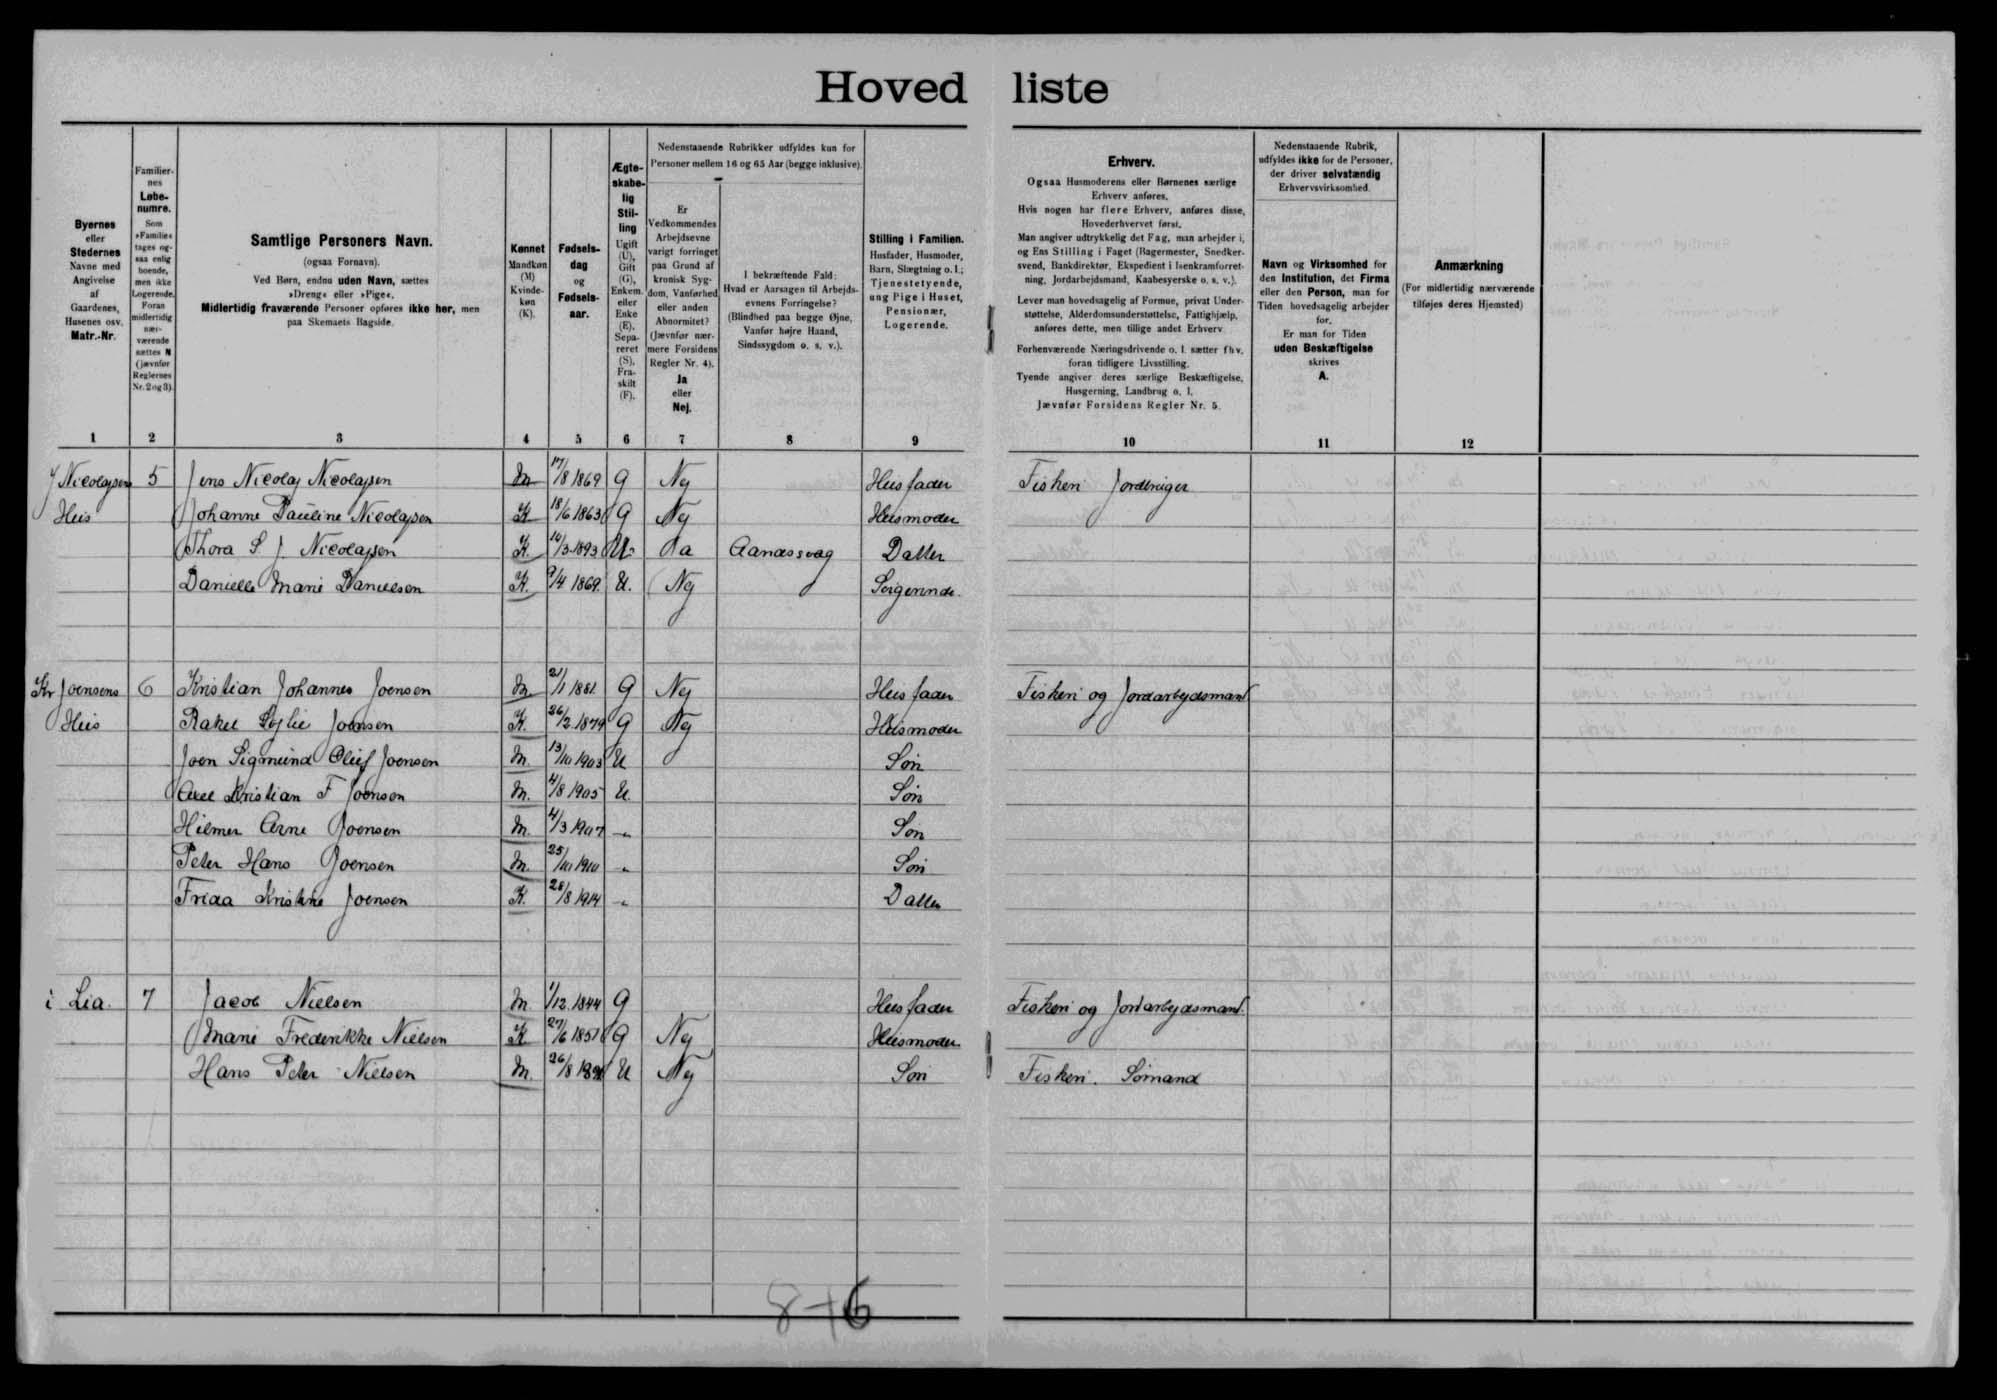 Hoved liste
Byernes
eller
Stedernes
Navne med
Angivelse
af
Gaardenes,
Husenes osv.
Matr.-Nr.
Familier-
nes
Løbe-
numre.
Som
»Familie«
tages og-
saa enlig
boende,
men ikke
Logerende.
Foran
midlertidig
nær-
værende
sættes N
(jævnfør
Reglernes
Nr. 2 og 3).
Samtlige Personers Navn.
(ogsaa Fornavn).
Ved Børn, endnu uden Navn, sættes
»Dreng« eller »Pige«.
Midlertidig fraværende Personer opføres ikke her, men
paa Skemaets Bagside.
Kønnet
Mandkøn
(M)
Kvinde-
køn
(K).
Fødsels-
dag
og
Fødsels-
aar.
Ægte-
skabe-
lig
Stil-
ling
Ugift
(U),
Gift
(G),
Enkem.
eller
Enke
(E),
Sepa-
reret
(S),
Fra-
skilt
(F).
Nedenstaaende Rubrikker udfyldes kun for
Personer mellem 16 og 65 Aar (begge inklusive).
Er
Vedkommendes
Arbejdsevne
varigt forringet
paa Grund af
kronisk Syg-
dom, Vanførhed
eller anden
Abnormitet?
(Jævnfør nær-
mere Forsidens
Regler Nr. 4).
Ja
eller
Nej.
I bekræftende Fald:
Hvad er Aarsagen til Arbejds-
evnens Forringelse?
(Blindhed paa begge Øjne,
Vanfør højre Haand,
Sindssygdom o. s. v.).
Stilling i Familien.
Husfader, Husmoder,
Barn, Slægtning o. l.;
Tjenestetyende,
ung Pige i Huset,
Pensionær,
Logerende.
Erhverv.
Ogsaa Husmoderens eller Børnenes særlige
Erhverv anføres.
Hvis nogen har flere Erhverv, anføres disse,
Hovederhvervet først.
Man angiver udtrykkelig det Fag, man arbejder i,
og Ens Stilling i Faget (Bagermester, Snedker-
svend, Bankdirektør, Ekspedient i Isenkramforret-
ning, Jordarbejdsmand, Kaabesyerske o. s. v.).
Lever man hovedsagelig af Formue, privat Under-
støttelse, Alderdomsunderstøttelse, Fattighjælp,
anføres dette, men tillige andet Erhverv
Forhenværende Næringsdrivende o. l. sætter fhv.
foran tidligere Livsstilling.
Tyende angiver deres særlige Beskæftigelse,
Husgerning, Landbrug o. l.
Jævnfør Forsidens Regler Nr. 5.
Nedenstaaende Rubrik,
udfyldes ikke for de Personer,
der driver selvstændig
Erhvervsvirksomhed.
Navn og Virksomhed for
den Institution, det Firma
eller den Person, man for
Tiden hovedsagelig arbejder
for.
Er man for Tiden
uden Beskæftigelse
skrives
A.
Anmærkning
(For midlertidig nærværende
tilføjes deres Hjemsted)
1 2 3 4 5 6 7 8 9 10 11 12
J Nicolajsens 5 Jens Nicolaj Nicolajsen M 17/8 1869 G Nej Husfader Fiskeri Jordbruger
Hus Johanne Pauline Nicolajsen K 18/6 1863 G Nej Husmoder
Thora S. J. Nicolajsen K. 10/3 1893 U. Ja Aandssvag Datter
Danielle Marie Danielsen K. 9/4 1869. U. Nej
Kr Joensens 6 Kristian Johannes Joensen M 21/1 1881. G Nej Husfader Fiskeri og Jordarbejdsmand
Hus Rakel Sofie Joensen K. 26/2 1879 G Nej Husmoder
Joen Sigmund Oluf Joensen M. 13/10 1903 U Søn
Axel Kristian F Joensen M. 4/8 1905 U. Søn
Hilmer Arne Joensen M. 4/3 1907 " Søn
Peter Hans Joensen M. 25/10 1910 " Søn
Frida Kristine Joensen K. 28/8 1914 " Datter
i Lia. 7 Jacob Nielsen M. 1/12 1844 G Husfader Fiskeri og Jordarbejdsmand.
Marie Frederikke Nielsen K 27/6 1851 G Nej Husmoder
Hans Peter Nielsen M. 26/8 U Nej Søn Fiskeri. Sømand
8+6